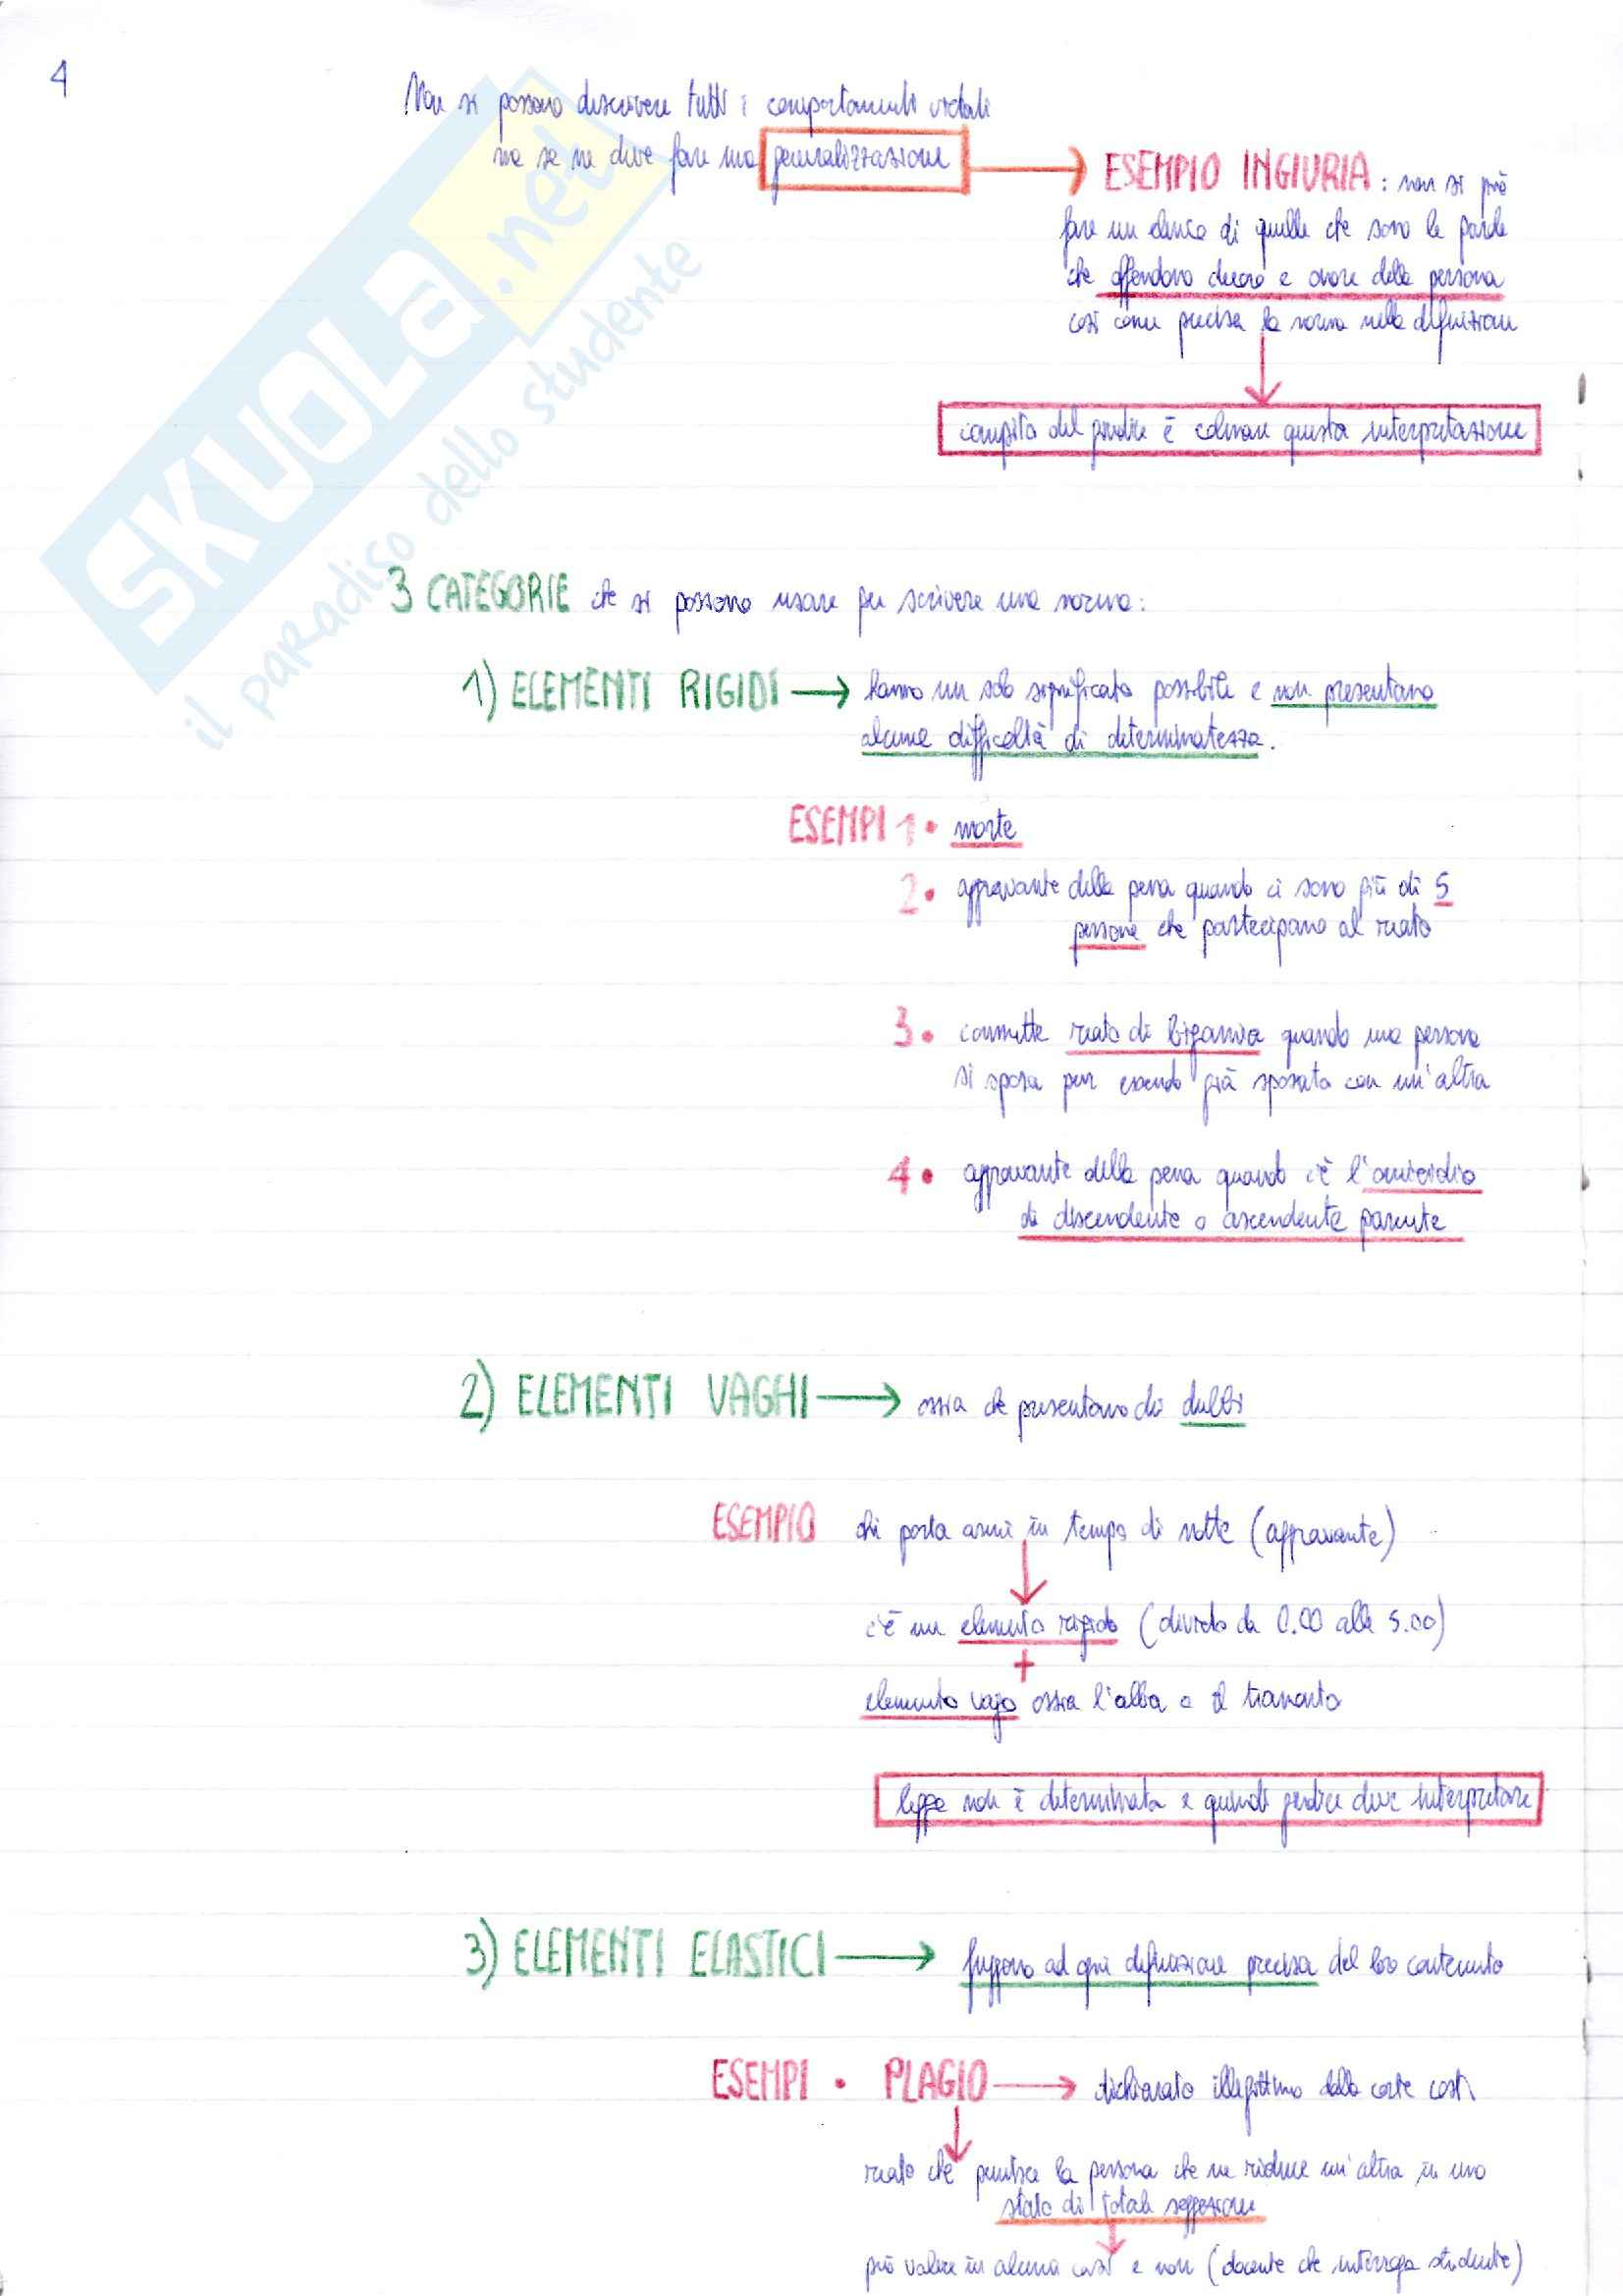 4
Non si possono descrivere tutti i comportamenti vietati
ma se ne deve fare una generalizzazione
ESEMPIO INGIURIA : non si può
fare un elenco di quelle che sono le parole
che offendono decoro e onore della persona
così come precisa la norma nella definizione
compito del giudice è colmare questa interpretazione
SKUOLA.net
il paradiso dello studente
3 CATEGORIE che si possono usare per scrivere una norma:
1) ELEMENTI RIGIDI → hanno un solo significato possibile e non presentano
alcuna difficoltà di determinatezza.
ESEMPI 1• morte
2• aggravante della pena quando ci sono più di 5
persone che partecipano al reato
3• commette reato di bigamia quando una persona
si sposa pur essendo già sposata con un'altra
4• aggravante della pena quando c'è l'omicidio
di discendente o ascendente parente
2) ELEMENTI VAGHI → ossia che presentano dei dubbi
ESEMPIO chi porta armi in tempo di notte (aggravante)
c'è un elemento rigido (divieto da 0.00 alle 5.00)
+
elemento vago ossia l'alba o il tramonto
legge non è determinata e quindi giudice deve interpretare
3) ELEMENTI ELASTICI → fuggono ad ogni definizione precisa del loro contenuto
ESEMPI • PLAGIO → dichiarato illegittimo dalla corte cost.
reato che punisce la persona che ne riduce un'altra in uno
stato di totale soggezione
può valere in alcuni casi e non (docente che interroga studente)